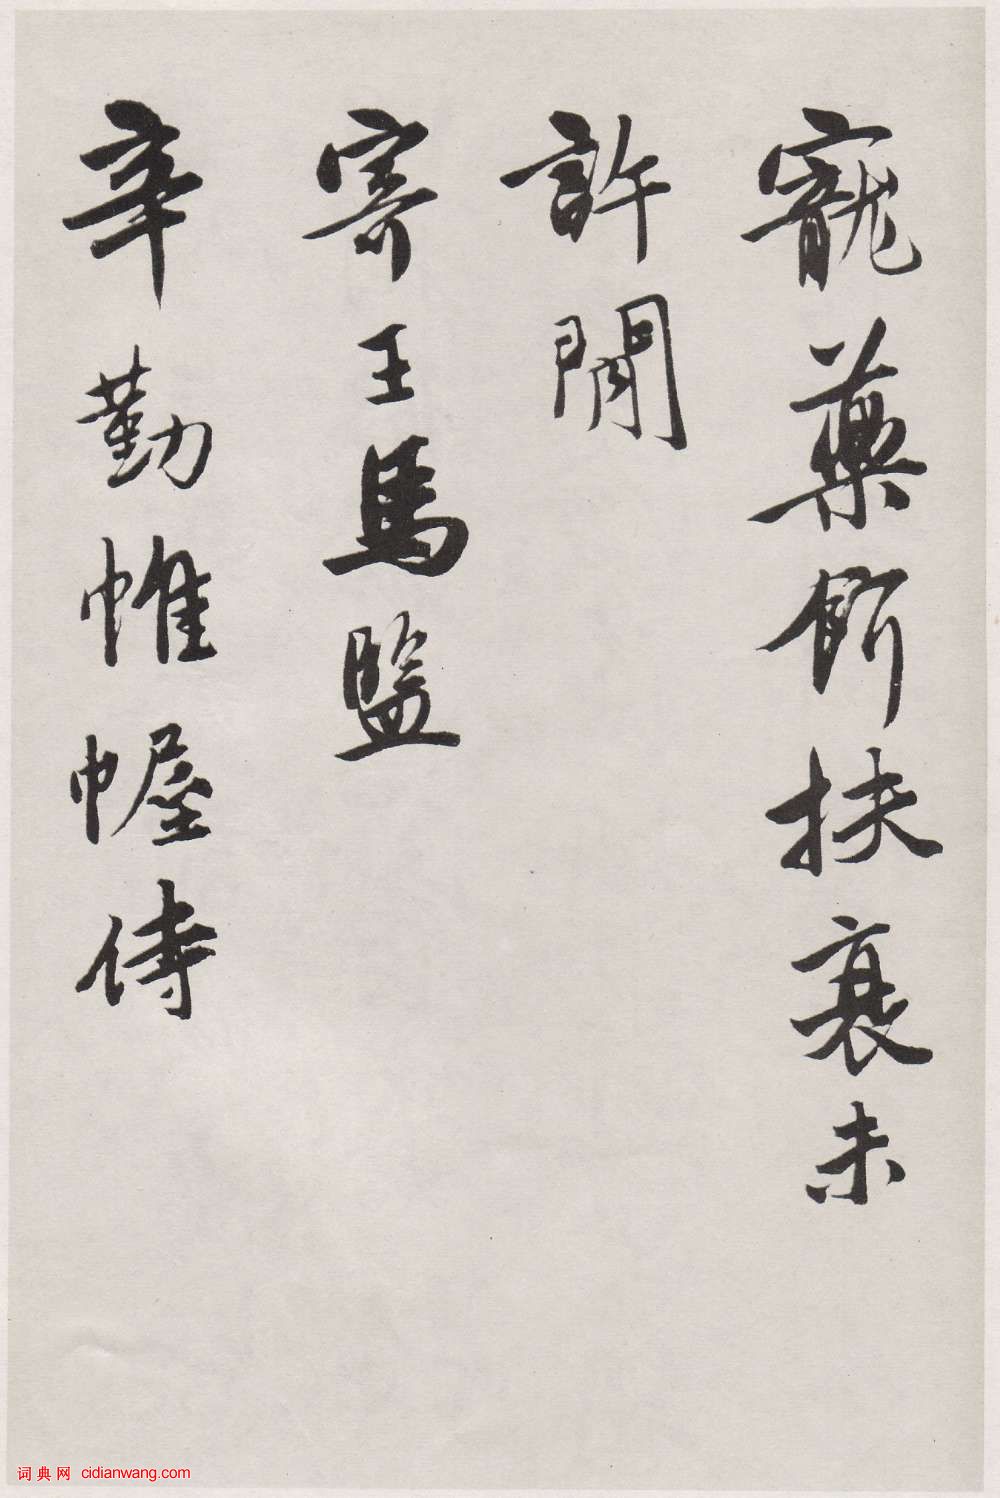 寵藥餌扶衰未
許閒
寄王馬監
辛勤帷幄侍
词典网 cidianwang.com